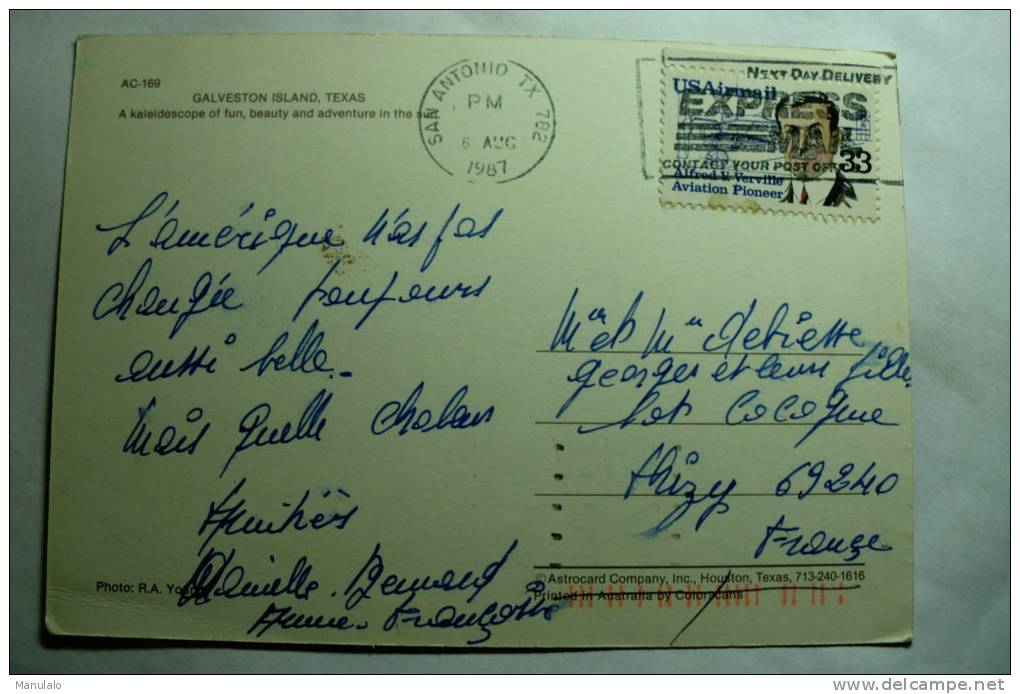 AC-169
GALVESTON ISLAND, TEXAS
A kaleidescope of fun, beauty and adventure in the sun
SAN ANTONIO TX 782
PM
6 AUG
1987
NEXT DAY DELIVERY
EXPRESS
CONTACT YOUR POST OFF
USAirmail
33
Alfred V. Verville
Aviation Pioneer
L'amérique n'as pas
changée toujours
aussi belle.
Mais quelle chaleur
Amitiés
Danielle. Bernard
Anne-Françoise
Mr et Mme
georges et leurs filles
Lot
Thizy 69240
France
Photo: R.A. Young
© Astrocard Company, Inc., Houston, Texas, 713-240-1616
Printed in Australia by Colorscans
Manulalo
delcampe.net